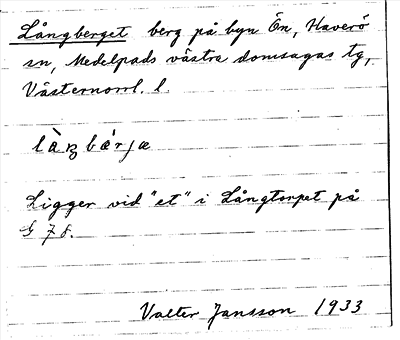 Långberget berg på byn Ön, Haverö
sn, Medelpads västra domsagas tg,
Västernorrl. l.
Ligger vid "et" i Långtorpet på
G 78.
Valter Jansson 1933